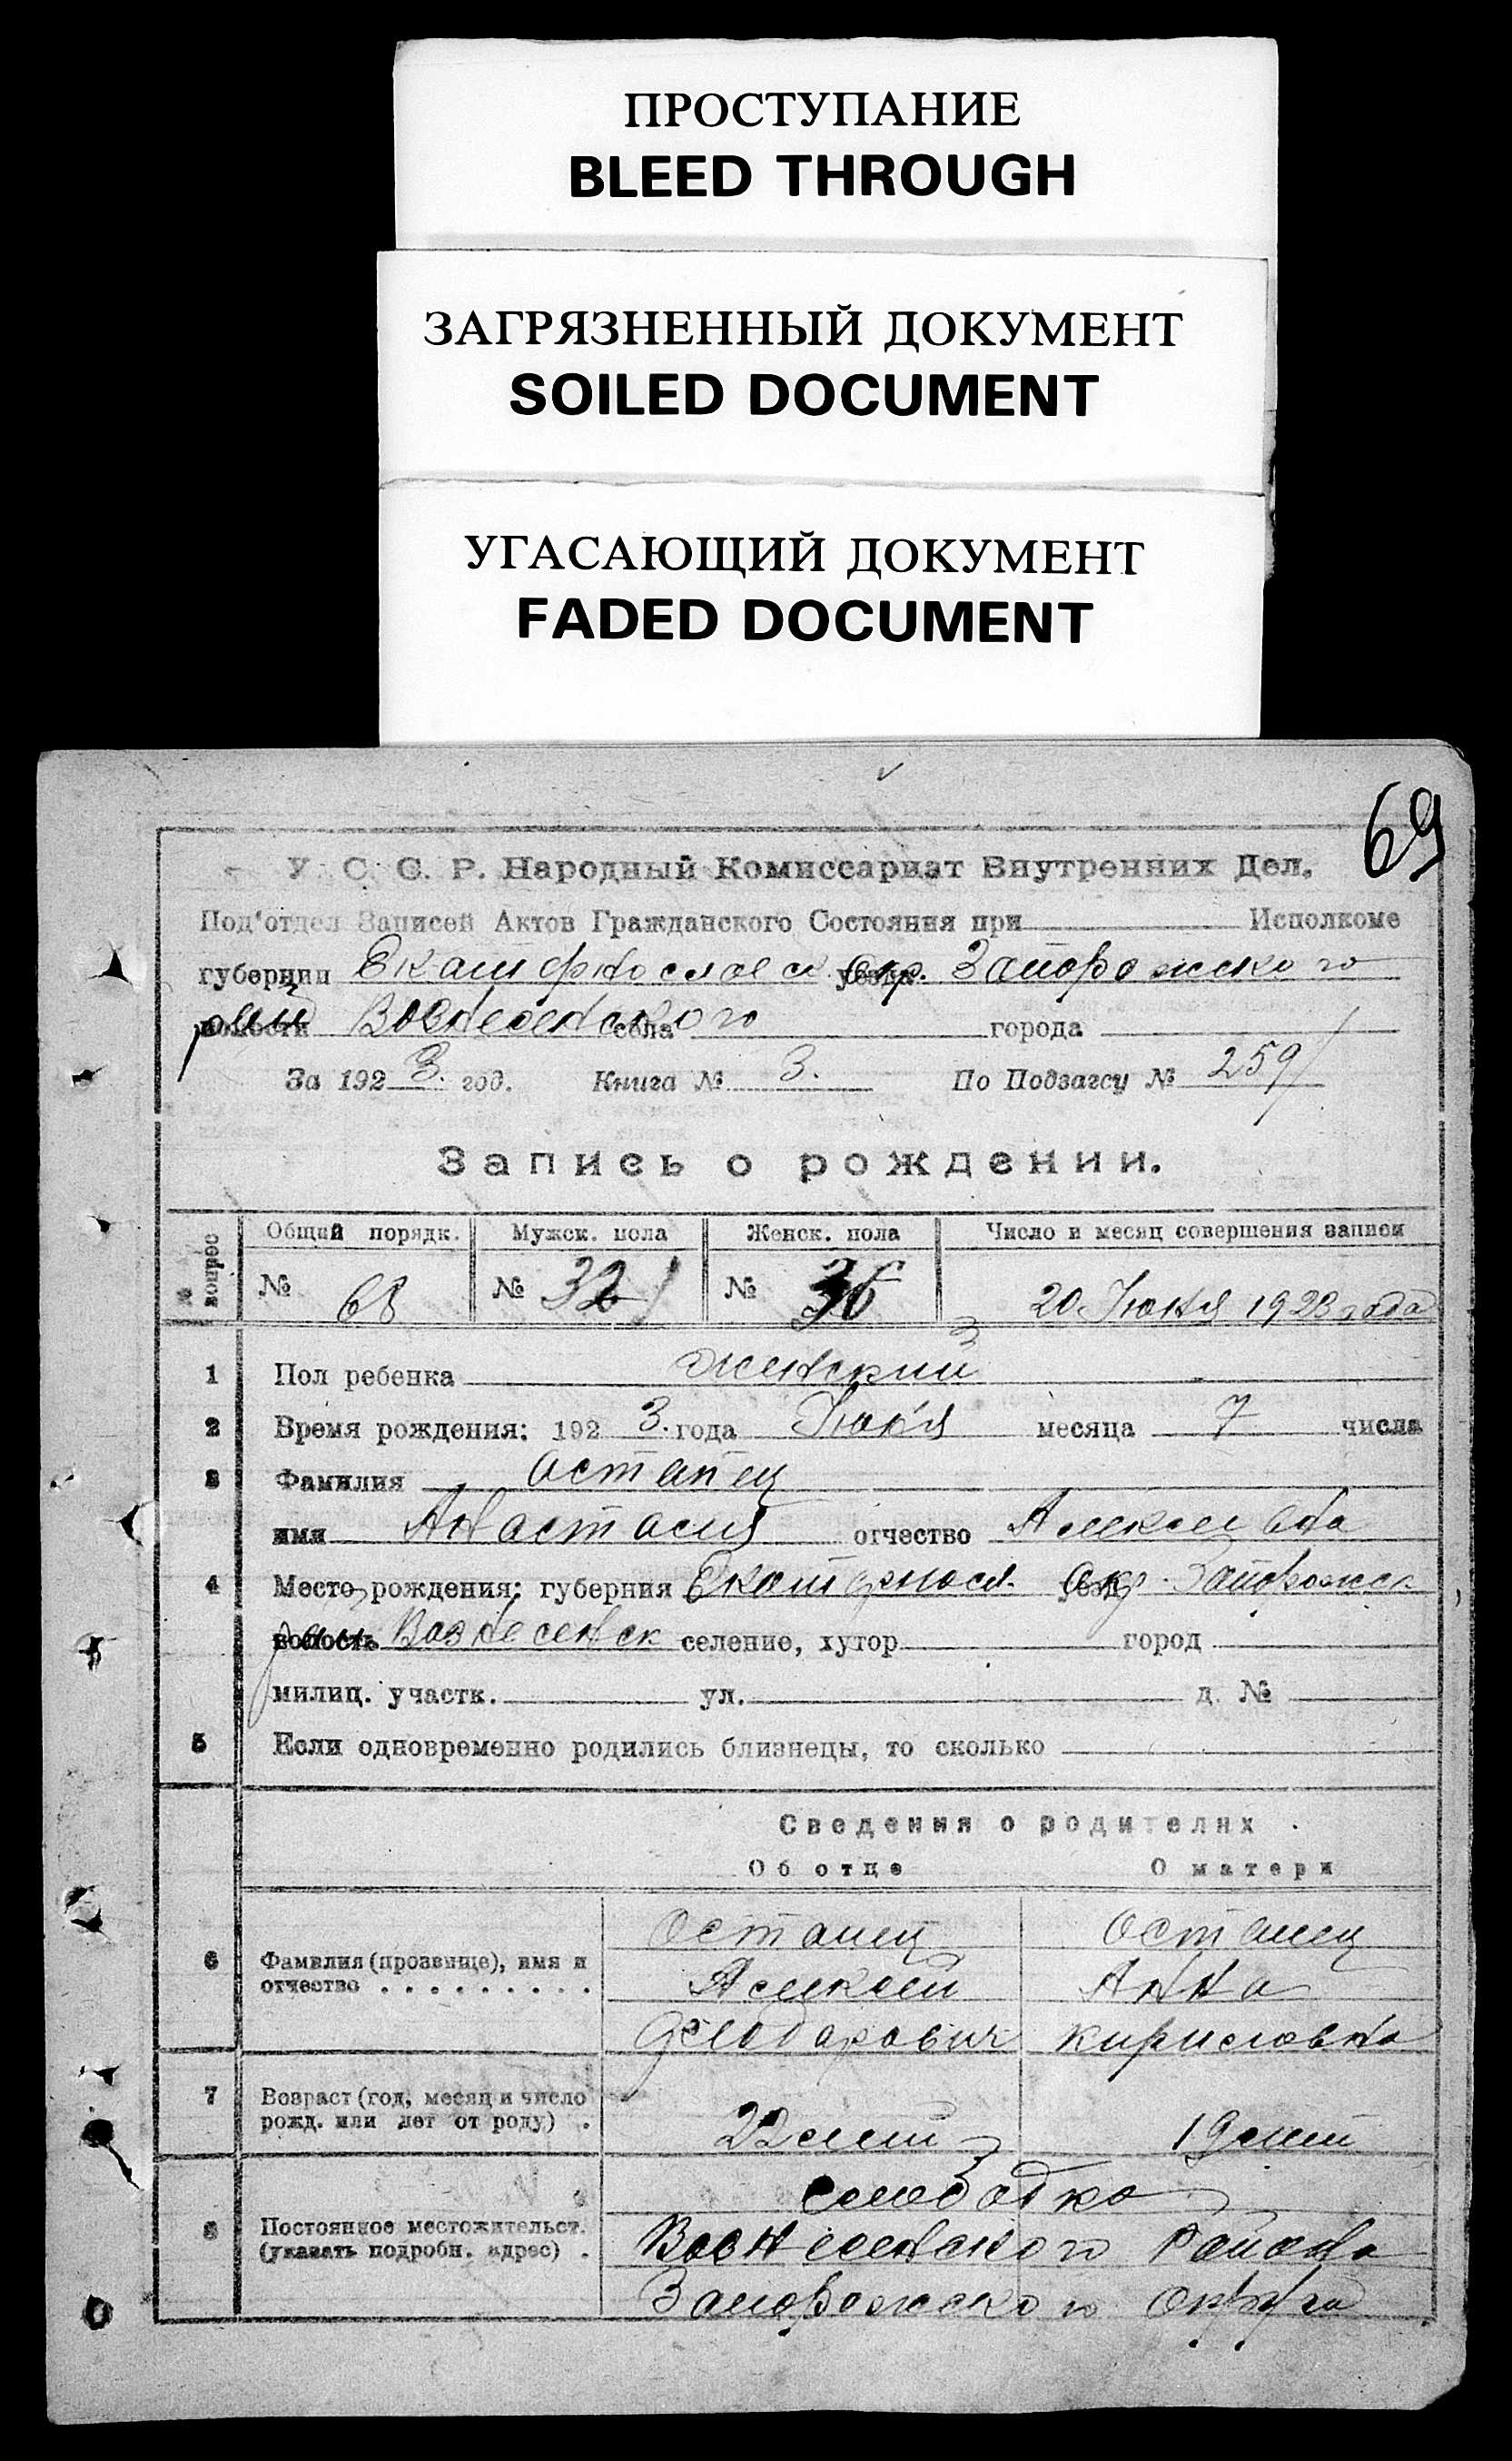 ПРОСТУПАНИЕ
BLEED THROUGH
ЗАГРЯЗНЕННЫЙ ДОКУМЕНТ
SOILED DOCUMENT
УГАСАЮЩИЙ ДОКУМЕНТ
FADED DOCUMENT
69
У. С. С. Р. Народный Комиссариат Внутренних Дел.
Под'отдел Записей Актов Гражданского Состояния при Исполкоме
губернии Екатеринославск окр. Запорожского
волости Вознесенского села города
За 1923. год. Книга № 3. По Подзагсу № 259
Запись о рождении.
№ вопрос Общий порядк. Мужск. пола Женск. пола Число и месяц совершения записи
№ 68 № 32 № 36 20 Июня 1923 года
1 Пол ребенка женский
2 Время рождения: 1923. года Июня месяца 7 числа
3 Фамилия Остапец
имя Анастасия отчество Алексеевна
4 Место рождения: губерния Екатериносл. окр. Запорожск
волость Вознесенск селение, хутор город
милиц. участк. ул. д. №
5 Если одновременно родились близнецы, то сколько
Сведения о родителях
Об отце О матери
6 Фамилия (прозвище), имя и отчество . . . . . . . . .
Остапец Остапец
Алексей Анна
Феодорович Кирилловна
7 Возраст (год, месяц и число
рожд. или лет от роду) .
22 лет 19 лет
8 Постоянное местожительст.
(указать подробн. адрес) .
Слободка
Вознесенского района
Запорожского округа